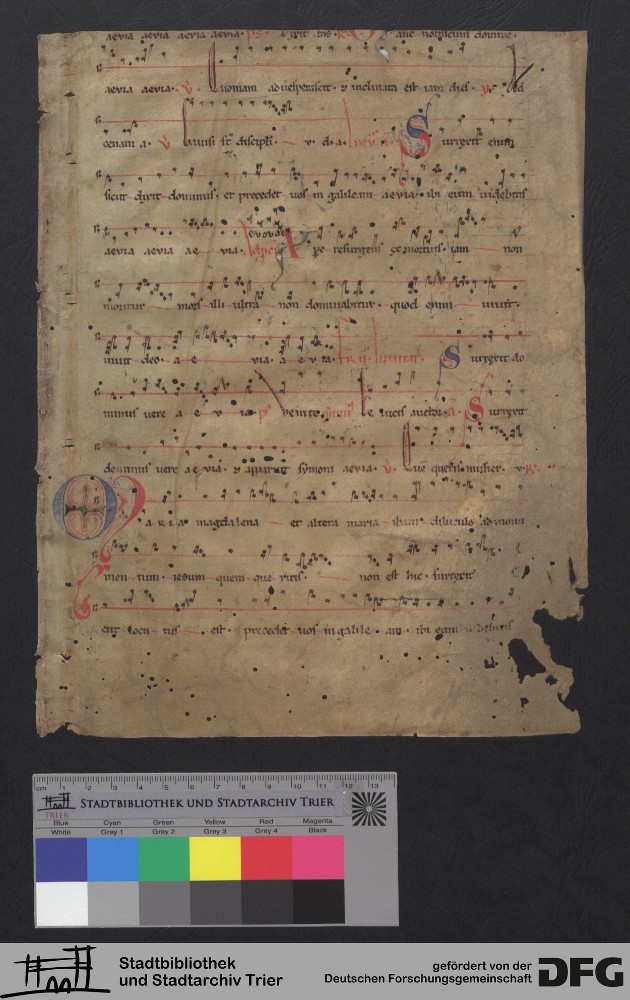 aevia aevia aevia aevia.
aevia aevia. v. Quoniam advesperascit. et inclinata est iam dies.
cenam a. v. Gavisi sunt discipuli. v. d. a. Surgexit enim
sicut dixit dominus. et precedet vos in galileam aevia. ibi eum videbitis
aevia aevia ae via. evovae resurgens ex mortuis. iam non
moritur mors illi ultra non dominabitur. quod enim vivit.
vivit deo. a e via. a e v ia. Surrexit do
minus vere a e v ia. ps Venite Surrexit
dominus vere aevia. et apparuit symoni aevia. v. Quem queris mulier. v.
Maria magdalena et altera maria ibant diluculo ad monu
men tum. iesum quem que ritis. non est hic. surrexit
locu tus est. precedet vos in galile am. ibi eum videbitis
cm 1 2 3 4 5 6 7 8 9 10 11 12 13
TRIER
STADTBIBLIOTHEK UND STADTARCHIV TRIER
Blue Cyan Green Yellow Red Magenta
White Grey 1 Grey 2 Grey 3 Grey 4 Black
Stadtbibliothek
und Stadtarchiv Trier
gefördert von der
Deutschen Forschungsgemeinschaft
DFG